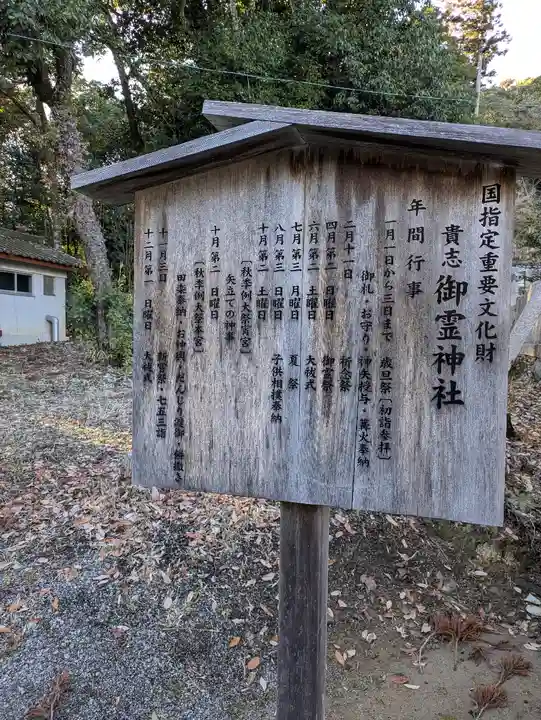 国指定重要文化財
貴志 御霊神社
年間行事
一月一日から三日まで 歳旦祭〔初詣参拝〕
御札・お守り・神矢授与・篝火奉納
二月十一日 祈念祭
四月第一 日曜日 御霊祭
六月第二 土曜日 大祓式
七月第三 月曜日 夏祭
八月第三 日曜日 子供相撲奉納
十月第二 土曜日
〔秋季例大祭宵宮〕
矢立ての神事
十月第二 日曜日
〔秋季例大祭本宮〕
田楽奉納・お神輿・だんじり渡御・餅撒き
十一月三日 新嘗祭・七五三詣
十二月第一 日曜日 大祓式